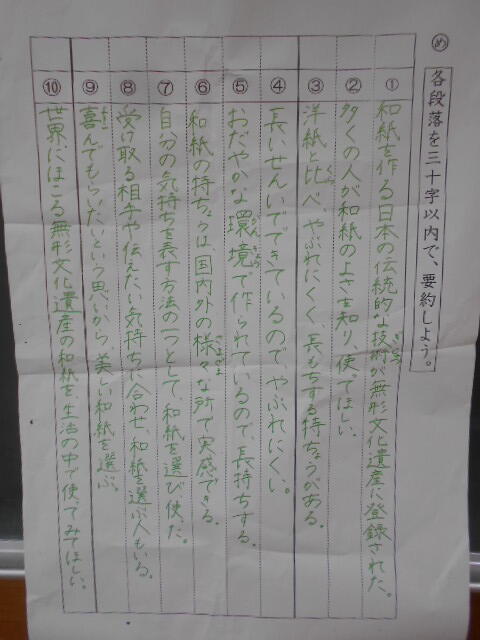 め 各段落を三十字以内で、要約しよう。
① 和紙を作る日本の伝統的な技術が無形文化遺産に登録された。
② 多くの人が和紙のよさを知り、使ってほしい。
③ 洋紙と比べ、やぶれにくく、長もちする特ちょうがある。
④ 長いせんいでできているので、やぶれにくい。
⑤ おだやかな環境で作られているので、長持ちする。
⑥ 和紙の特ちょうは、国内外の様々な所で実感できる。
⑦ 自分の気持ちを表す方法の一つとして、和紙を選び使った。
⑧ 受け取る相手や伝えたい気持ちに合わせ、和紙を選ぶ人もいる。
⑨ 喜んでもらいたいという思いから、美しい和紙を選ぶ。
⑩ 世界にほこる無形文化遺産の和紙を、生活の中で使ってみてほしい。